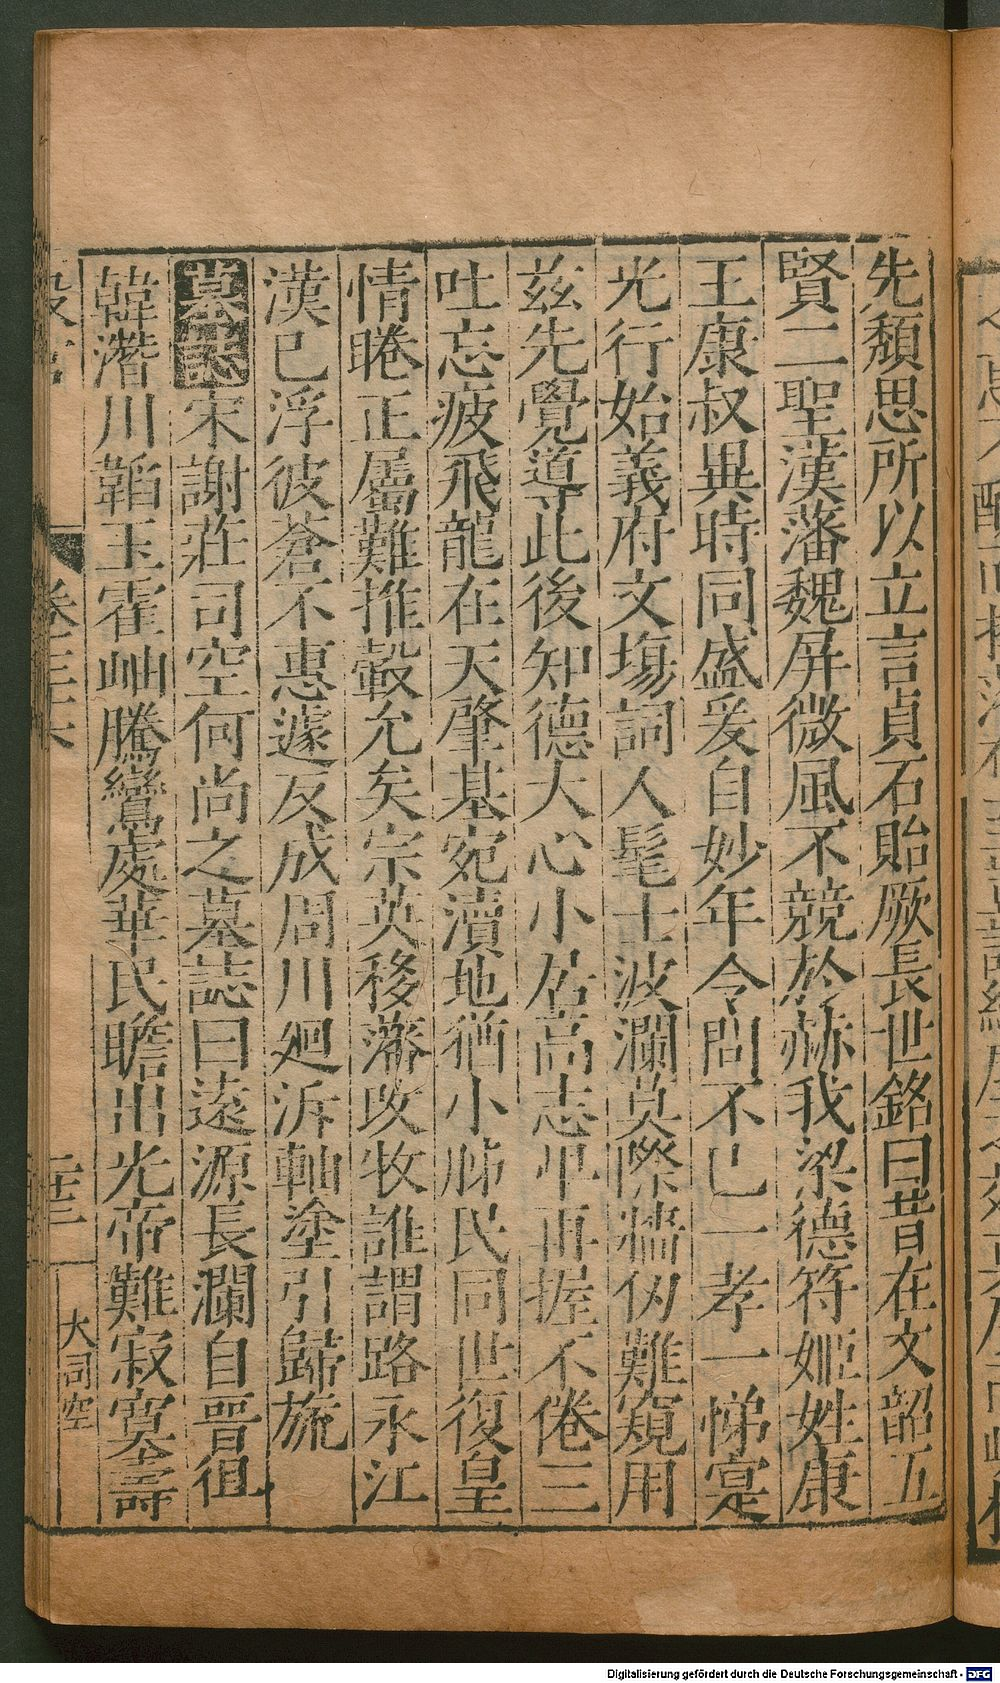 先頹思所以立言貞石貽厥長世銘曰昔在文韶五
賢二聖漢藩魏屏微風不競於赫我梁德符姬姓康
王康叔異時同盛爰自妙年令問不已一孝一悌寔
光行始義府文塲詞人髦士波瀾莫際墻仞難窺用
茲先覺導此後知德大心小居高志卑再握不倦三
吐忘疲飛龍在天肇基宛瀆地猶小腆民同世復皇
情睠正屬難推轂允矣宗英移藩改牧誰謂路永江
漢已浮彼蒼不惠遽反成周川廻泝軸塗引歸旒
墓誌宋謝莊司空何尚之墓誌曰遠源長瀾自晉徂
韓潛川韜玉霍岫騰鸞處華民瞻出光帝難寂寞壽
卷三六
二十三
大司空
Digitalisierung gefördert durch die Deutsche Forschungsgemeinschaft - DFG